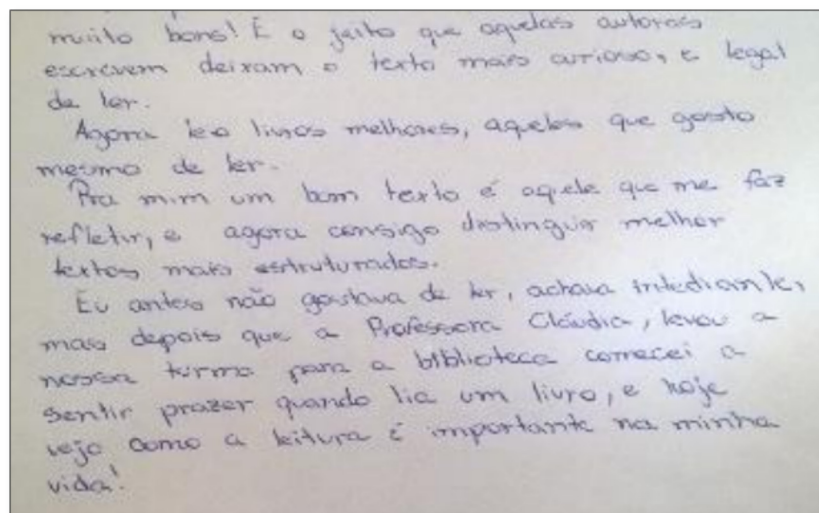 muito bons! E o jeito que aquelas autoras
escrevem deixam o texto mais curioso, e legal
de ler.
Agora leo livros melhores, aqueles que gosto
mesmo de ler.
Pra mim um bom texto é aquele que me faz
refletir, e agora consigo distinguir melhor
textos mais estruturados.
Eu antes não gostava de ler, achava intediante,
mas depois que a Professora Cláudia, levou a
nossa turma para a biblioteca comecei a
sentir prazer quando lia um livro, e hoje
vejo como a leitura é importante na minha
vida!